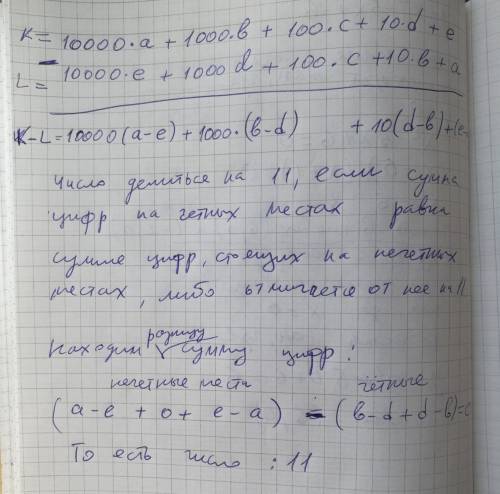 K = 10000·a + 1000·в + 100·c + 10·d + e
−
L = 10000·e + 1000 d + 100·c + 10·в + a
K−L = 10000(a−e) + 1000·(в−d) + 10(d−в)+(e−
Число делиться на 11, если сумма
цифр на чётных местах равна
сумме цифр, стоящих на нечетных
местах, либо отличается от нее на 11
разницу
Находим √ сумму цифр:
нечетные места чётные
(a−e + 0 + e−a) − (в−d+d−в)=0
То есть число ⋮ 11